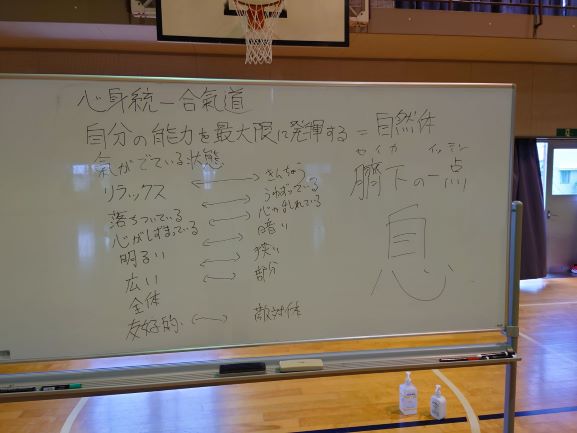 心身統一合氣道
自分の能力を最大限に発揮する = 自然体
氣がでている状態
リラックス ←→ きんちょう
落ちついている ←→ うわずっている
心がしずまっている ←→ 心がみだれている
明るい ←→ 暗い
広い ←→ 狭い
全体 ←→ 部分
友好的 ←→ 敵対体
セイカ イッテン
臍下の一点
息